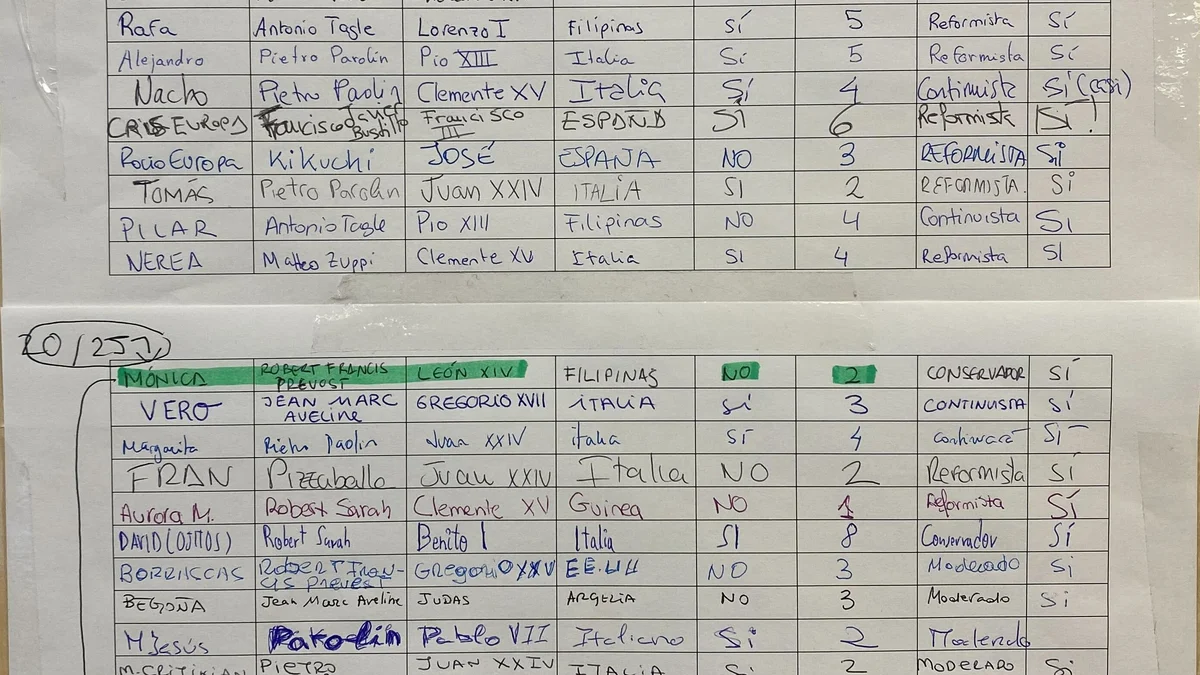 Rafa Antonio Tagle Lorenzo I Filipinas SÍ 5 Reformista SÍ
Alejandro Pietro Parolin Pío XIII Italia Sí 5 Reformista SÍ
Nacho Pietro Paolin Clemente XV Italia SÍ 4 Continuista SÍ (casi)
CRIS EUROPA Francisco Javier Bustillo Francisco III ESPAÑA SÍ 6 Reformista SÍ!
Rocio Europa Kikuchi JOSÉ ESPAÑA NO 3 REFORMISTA SÍ
TOMÁS Pietro Parolin Juan XXIV ITALIA SI 2 REFORMISTA. SÍ
PILAR Antonio Tagle Pio XIII Filipinas NO 4 Continuista SI
NEREA Matteo Zuppi Clemente XV Italia SI 4 Reformista SI
MÓNICA ROBERT FRANCIS PREVOST LEÓN XIV FILIPINAS NO 2 CONSERVADOR SÍ
VERO JEAN MARC AVELINE GREGORIO XVII ITALIA SÍ 3 CONTINUISTA SÍ
Margarita Pietro Paolin Juan XXIV italia SÍ 4 SÍ
FRAN Pizzaballa Juan XXIV Italia NO 2 Reformista SÍ
Aurora M. Robert Sarah Clemente XV Guinea NO 1 Reformista SÍ
DAVID (OJITOS) Robert Sarah Benito I Italia SI 8 Conservador SÍ
BORRASCAS ROBERT FRANCIS PREVEST GREGORIO XXV EE.UU NO 3 Moderado Si
BEGOÑA Jean Marc Aveline JUDAS ARGELIA NO 3 Moderado Si
Mª Jesús Parolin Pablo VII Italiano Sí 2 Moderado
PIETRO JUAN XXIV ITALIA Si 2 MODERADO Si